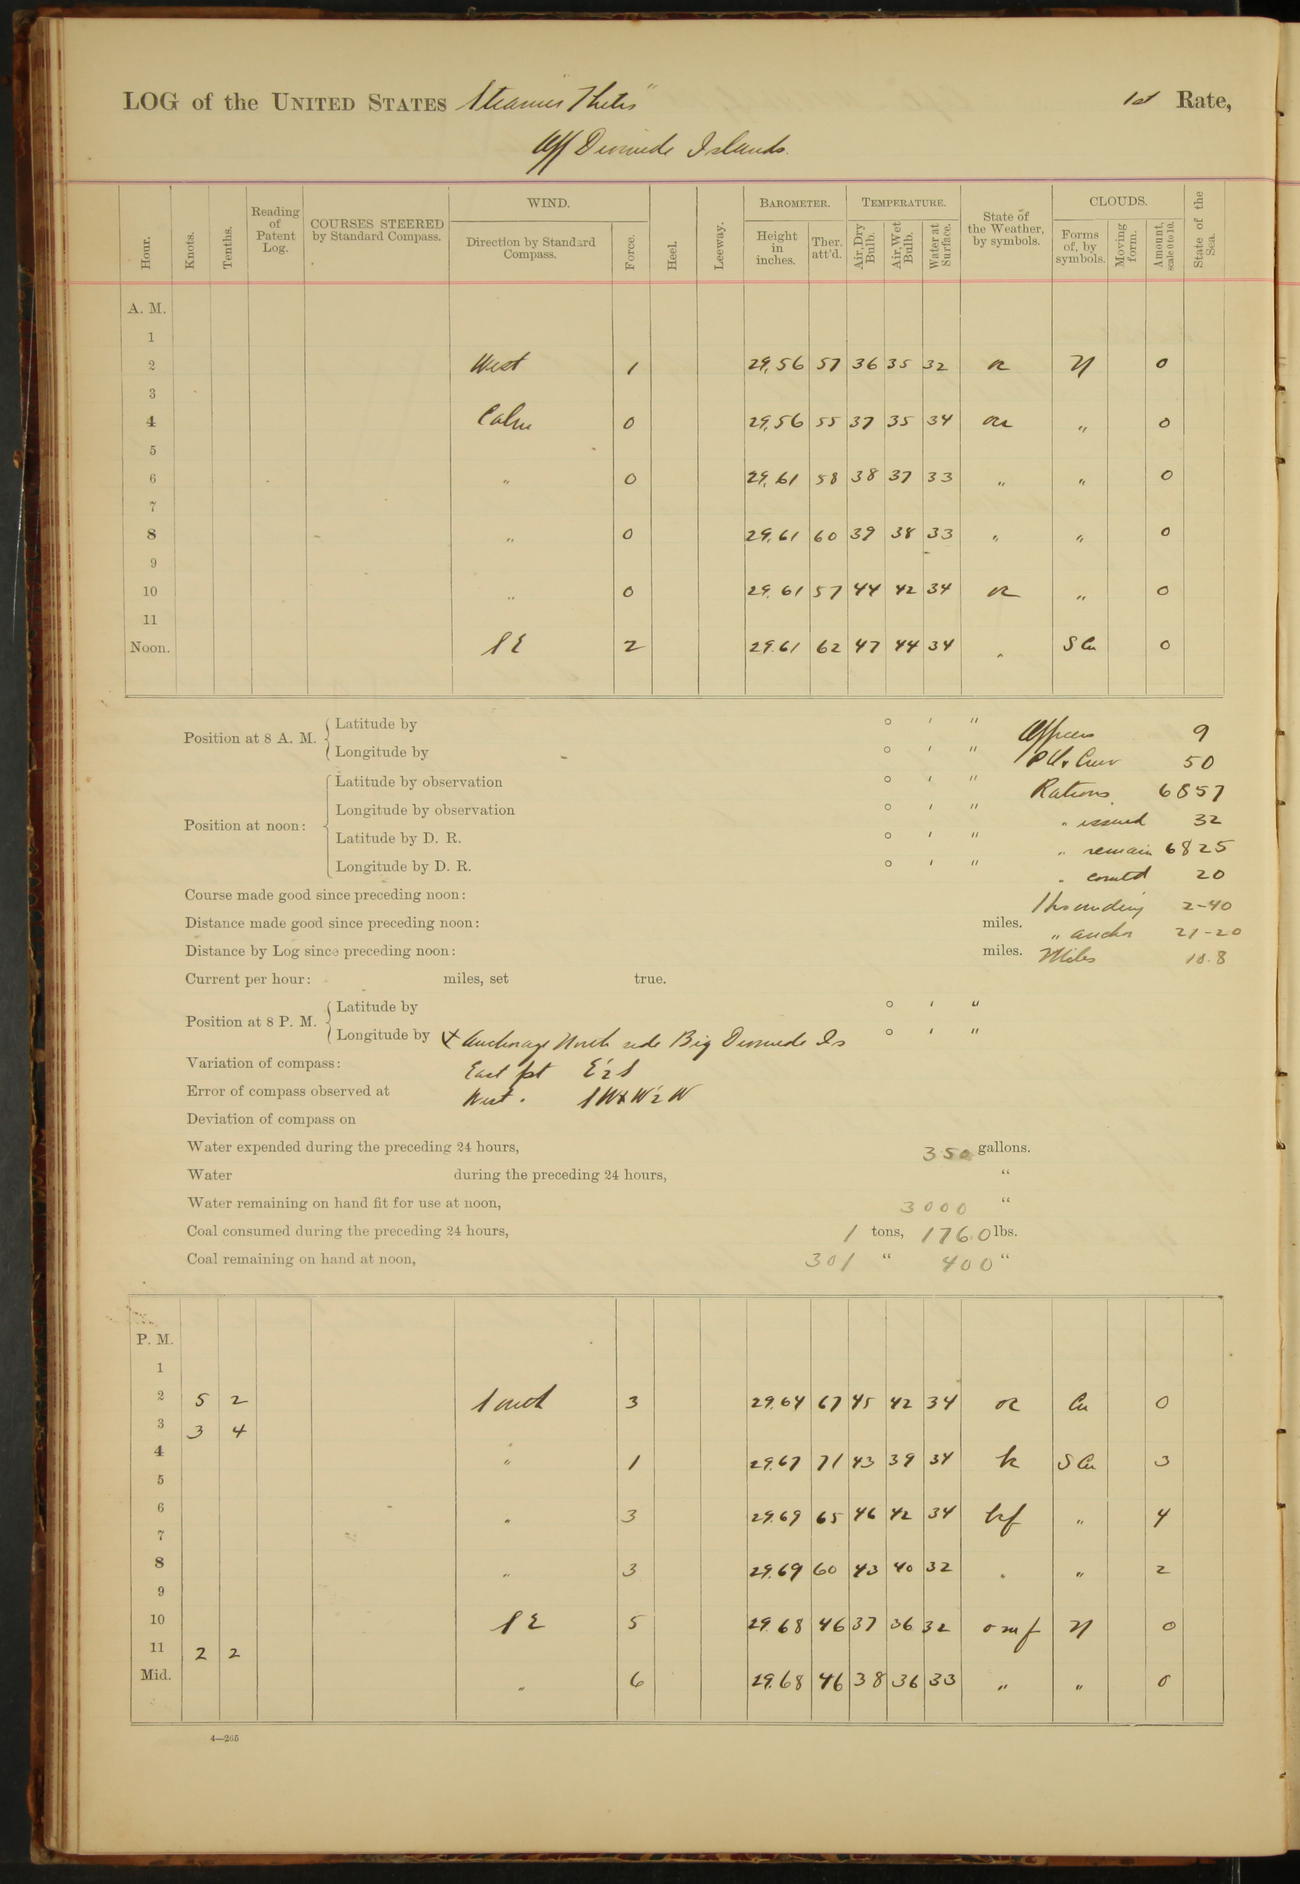 LOG of the UNITED STATES Steamer "Thetis" 1st Rate,
Off Diomede Islands.
Hour. Knots. Tenths. Reading of Patent Log. COURSES STEERED by Standard Compass. WIND. Direction by Standard Compass. Force. Heel. Leeway. BAROMETER. Height in inches. Ther. att'd. TEMPERATURE. Air, Dry Bulb. Air, Wet Bulb. Water at Surface. State of the Weather, by symbols. CLOUDS. Forms of, by symbols. Moving form. Amount, scale 0 to 10. State of the Sea.
A. M.
1
2 West 1 29.56 57 36 35 32 N 0
3
4 Calm 0 29.56 55 37 35 34 " 0
5
6 " 0 29.61 58 38 37 33 " " 0
7
8 " 0 29.61 60 39 38 33 " " 0
9
10 " 0 29.61 57 44 42 34 " 0
11
Noon. SE 2 29.61 62 47 44 34 " S Cu 0
Position at 8 A. M. Latitude by ° ′ ″ Officers 9
Longitude by ° ′ ″ Crew 50
Position at noon: Latitude by observation ° ′ ″ Rations 6857
Longitude by observation ° ′ ″ " issued 32
Latitude by D. R. ° ′ ″ " remain 6825
Longitude by D. R. ° ′ ″ " comtd 20
Course made good since preceding noon: 2-40
Distance made good since preceding noon: miles. " anchor 21-20
Distance by Log since preceding noon: miles. Miles 18.8
Current per hour: miles, set true.
Position at 8 P. M. Latitude by ° ′ ″
Longitude by ° ′ ″ Anchorage North side Big Diomede Is
Variation of compass: East pt E½S
Error of compass observed at West " SWxW½W
Deviation of compass on
Water expended during the preceding 24 hours, 350 gallons.
Water during the preceding 24 hours, "
Water remaining on hand fit for use at noon, 3000 "
Coal consumed during the preceding 24 hours, 1 tons, 1760 lbs.
Coal remaining on hand at noon, 301 " 400 "
P. M.
1
2 5 2 South 3 29.64 67 45 42 34 Cu 0
3 3 4
4 " 1 29.67 71 43 39 34 S Cu 3
5
6 " 3 29.69 65 46 42 34 " 4
7
8 " 3 29.69 60 43 40 32 " " 2
9
10 SE 5 29.68 46 37 36 32 omf N 0
11 2 2
Mid. " 6 29.68 46 38 36 33 " " 0
4—265